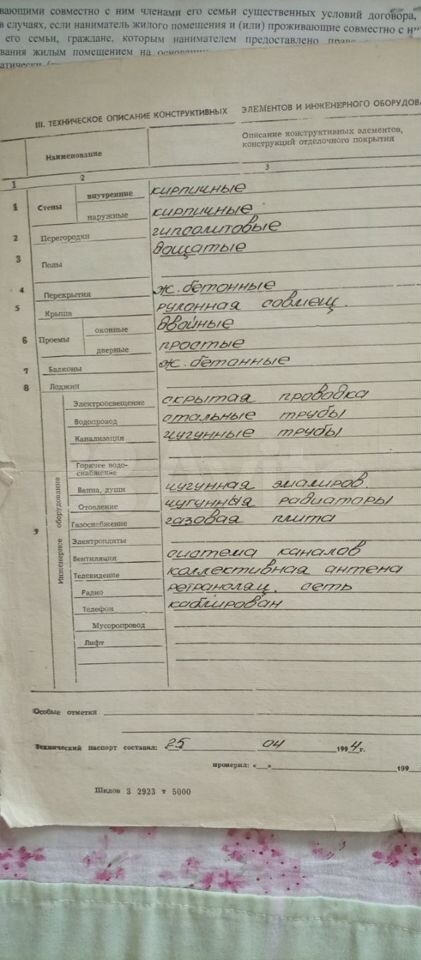 вающими совместно с ним членами его семьи существенных условий договора,
в случаях, если наниматель жилого помещения и (или) проживающие совместно с
его семьи, граждане, которым нанимателем предоставлено
вания жилым помещением на
III. ТЕХНИЧЕСКОЕ ОПИСАНИЕ КОНСТРУКТИВНЫХ ЭЛЕМЕНТОВ И ИНЖЕНЕРНОГО ОБОРУДОВА
Наименование
Описание конструктивных элементов,
конструкций отделочного покрытия
1 2 3
1 Стены внутренние кирпичные
наружные кирпичные
2 Перегородки гипсолитовые
3 Полы дощатые
4 Перекрытия ж. бетонные
5 Крыша рулонная совмещ.
6 Проемы оконные двойные
дверные простые
7 Балконы ж. бетонные
8 Лоджии
9 Инженерное оборудование
Электроосвещение скрытая проводка
Водопровод стальные трубы
Канализация чугунные трубы
Горячее водо-
снабжение
Ванна, души чугунная эмалиров.
Отопление чугунные радиаторы
Газоснабжение газовая плита
Электроплиты
Вентиляция система каналов
Телевидение коллективная антена
Радио ретрансляц. сеть
Телефон каблирован
Мусоропровод
Лифт
Особые отметки
Технический паспорт составил: 25 04 1994 г.
проверил: «__» 199
Шклов З 2923 т 5000